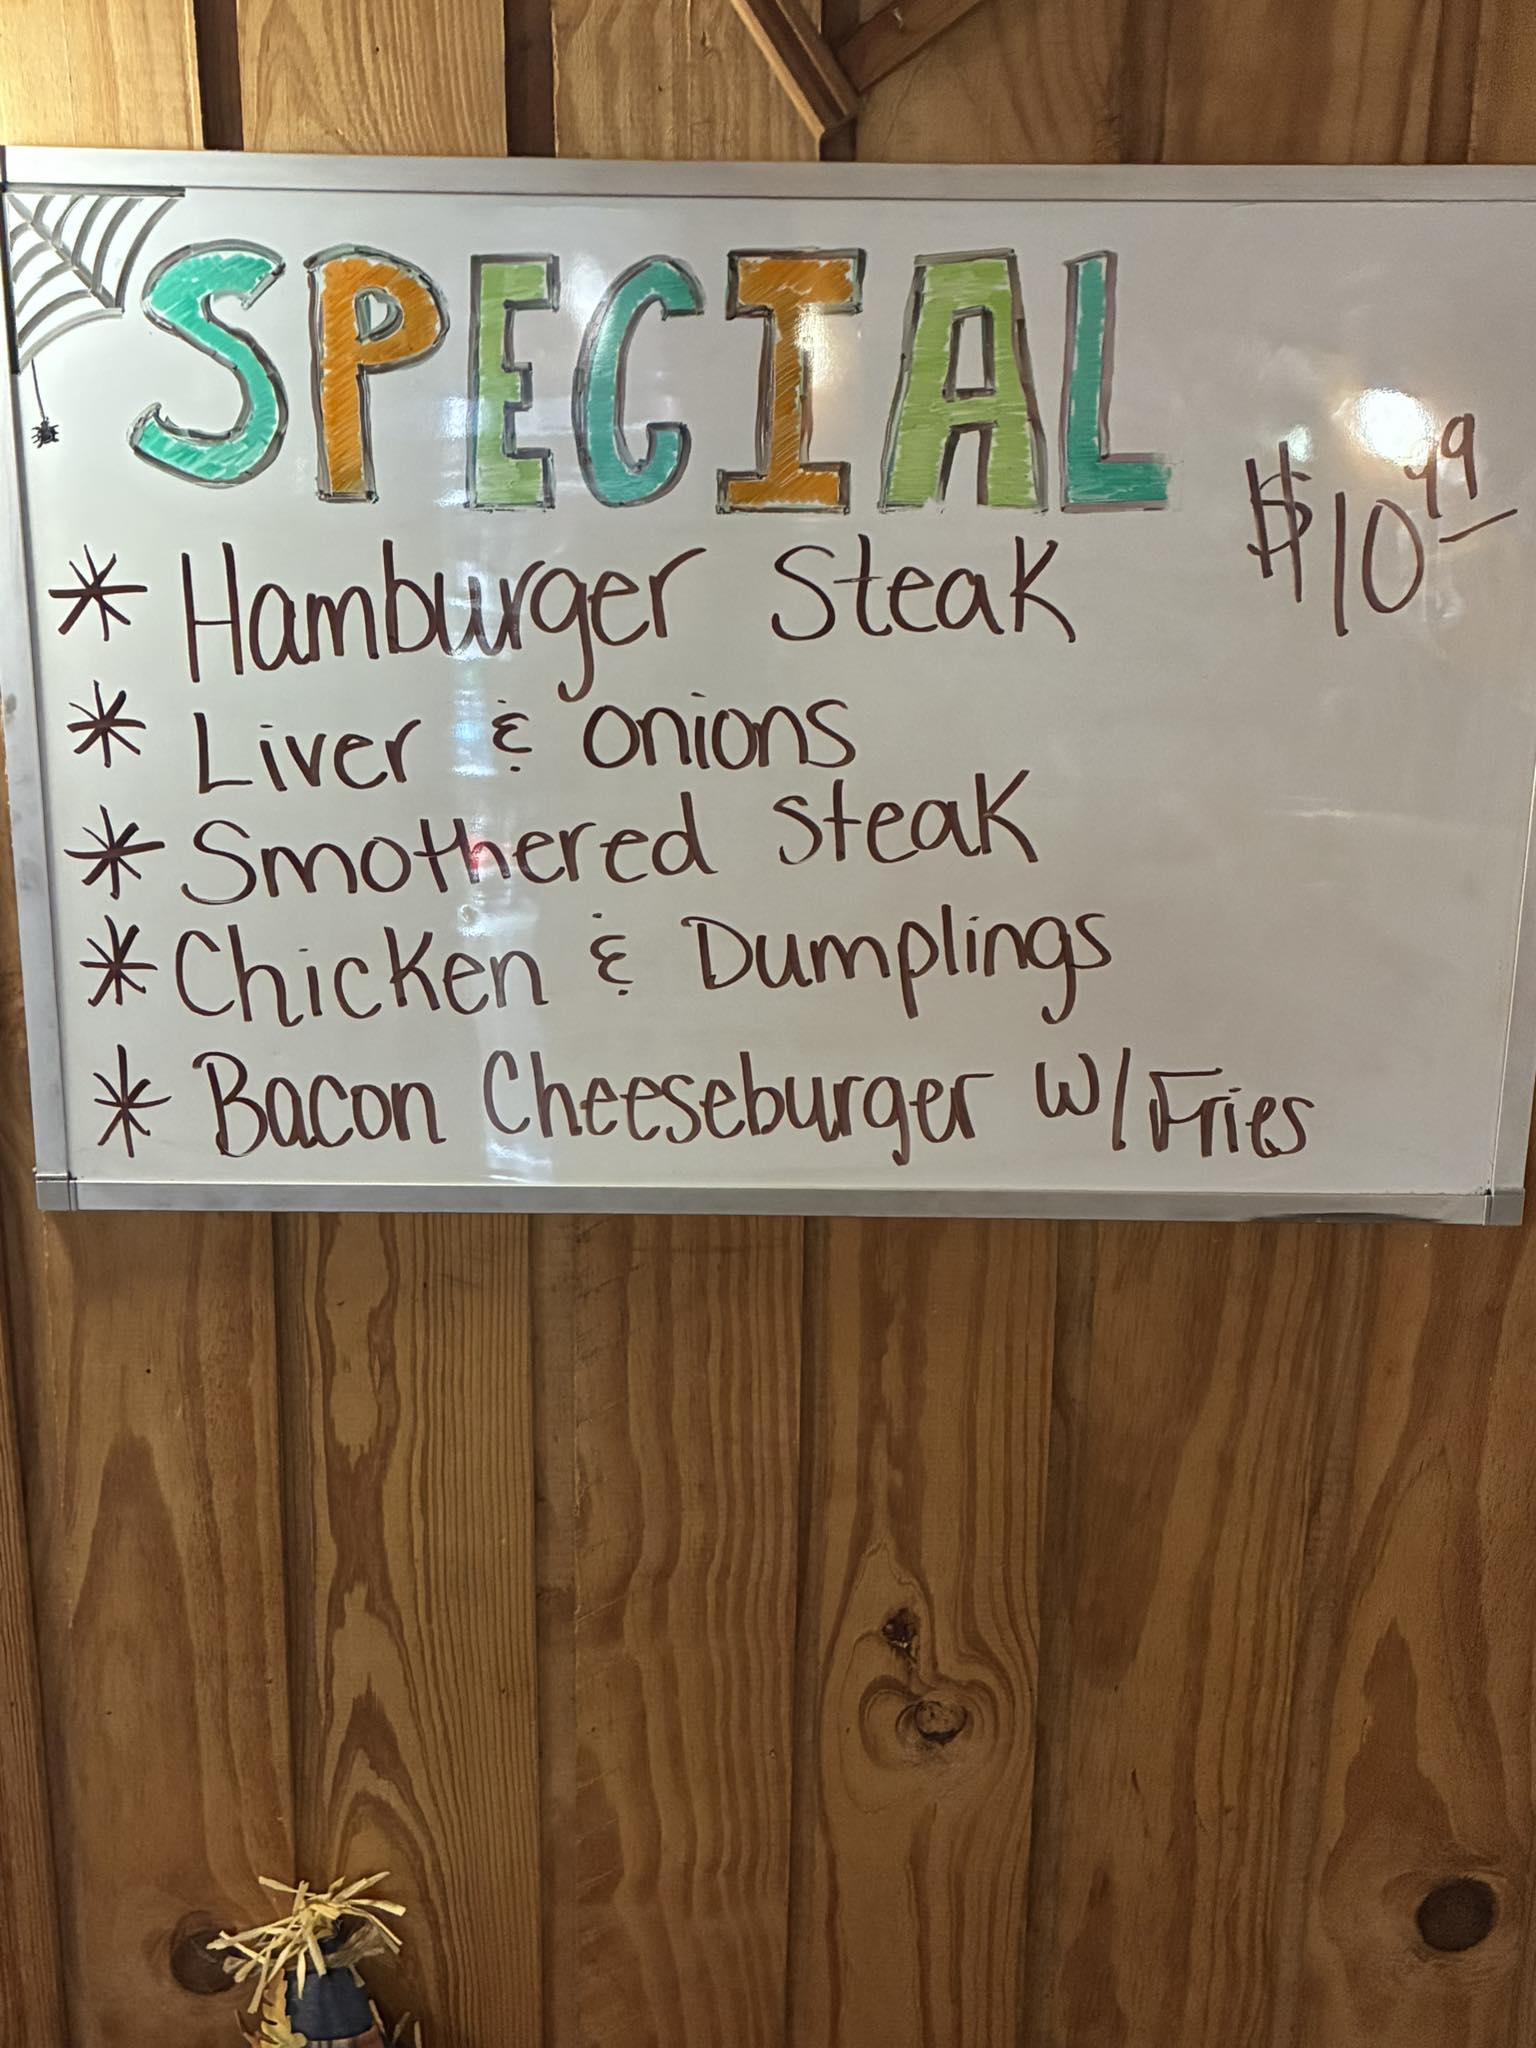 SPECIAL
$10.99
* Hamburger Steak
* Liver & onions
* Smothered Steak
* Chicken & Dumplings
* Bacon Cheeseburger w/ Fries